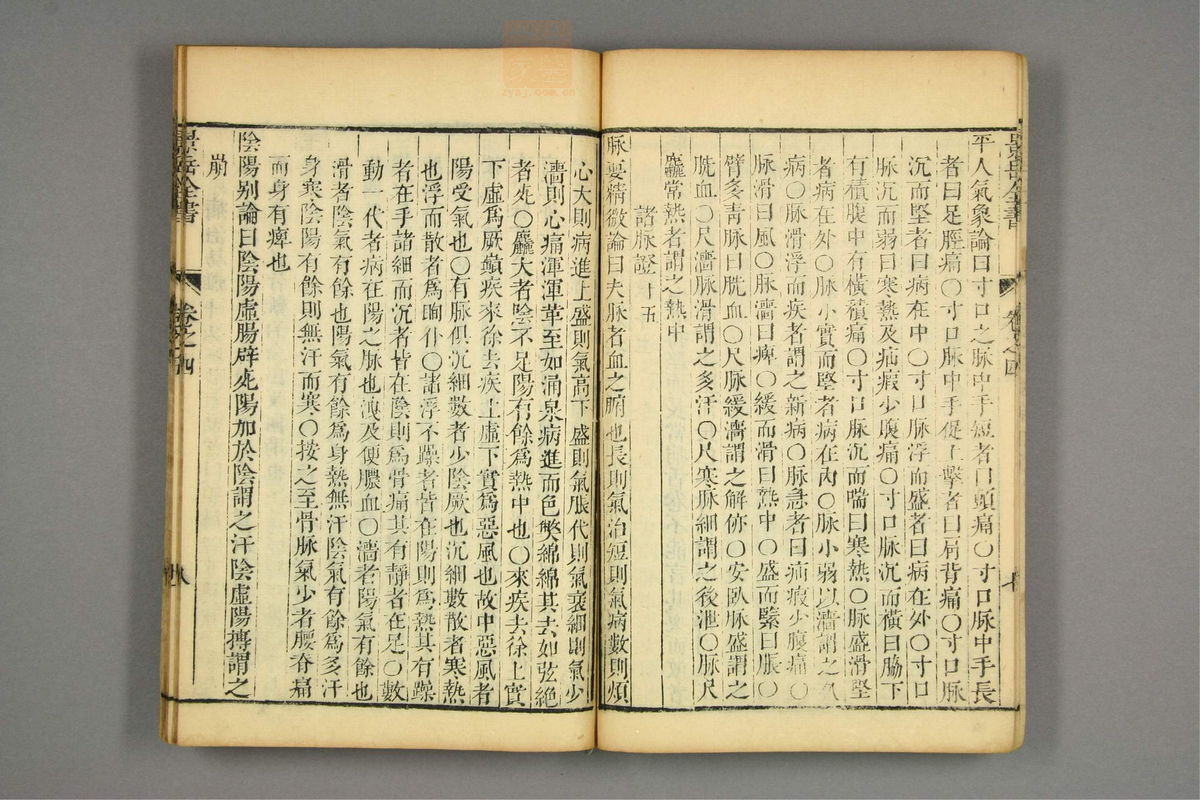 平人氣象論曰寸口之脉中手短者曰頭痛〇寸口脉中手長
者曰足脛痛〇寸口脉中手促上擊者曰肩背痛〇寸口脉
沉而堅者曰病在中〇寸口脉浮而盛者曰病在外〇寸口
脉沉而弱曰寒熱及疝瘕少腹痛〇寸口脉沉而橫曰脇下
有積腹中有橫積痛〇寸口脉沉而喘曰寒熱〇脉盛滑堅
者病在外〇脉小實而堅者病在內〇脉小弱以濇謂之久
病〇脉滑浮而疾者謂之新病〇脉急者曰疝瘕少腹痛〇
脉滑曰風〇脉濇曰痺〇緩而滑曰熱中〇盛而緊曰脹〇
臂多青脉曰脫血〇尺脉緩濇謂之解㑊〇安臥脉盛謂之
脫血〇尺濇脉滑謂之多汗〇尺寒脉細謂之後泄〇脉尺
麤常熱者謂之熱中
諸脉證 十五
脉要精微論曰夫脉者血之腑也長則氣治短則氣病數則煩
心大則病進上盛則氣高下盛則氣脹代則氣衰細則氣少
濇則心痛渾渾革至如涌泉病進而色弊綿綿其去如弦絕
者死〇麤大者陰不足陽有餘爲熱中也〇來疾去徐上實
下虛爲厥巔疾來徐去疾上虛下實爲惡風也故中惡風者
陽受氣也〇有脉俱沉細數者少陰厥也沉細數散者寒熱
也浮而散者爲眴仆〇諸浮不躁者皆在陽則爲熱其有躁
者在手諸細而沉者皆在陰則爲骨痛其有靜者在足〇數
動一代者病在陽之脉也洩及便膿血〇濇者陽氣有餘也
滑者陰氣有餘也陽氣有餘爲身熱無汗陰氣有餘爲多汗
身寒陰陽有餘則無汗而寒〇按之至骨脉氣少者腰脊痛
而身有痺也
陰陽别論曰陰陽虛腸辟死陽加於陰謂之汗陰虛陽搏謂之
崩
景岳全書
卷之四
八